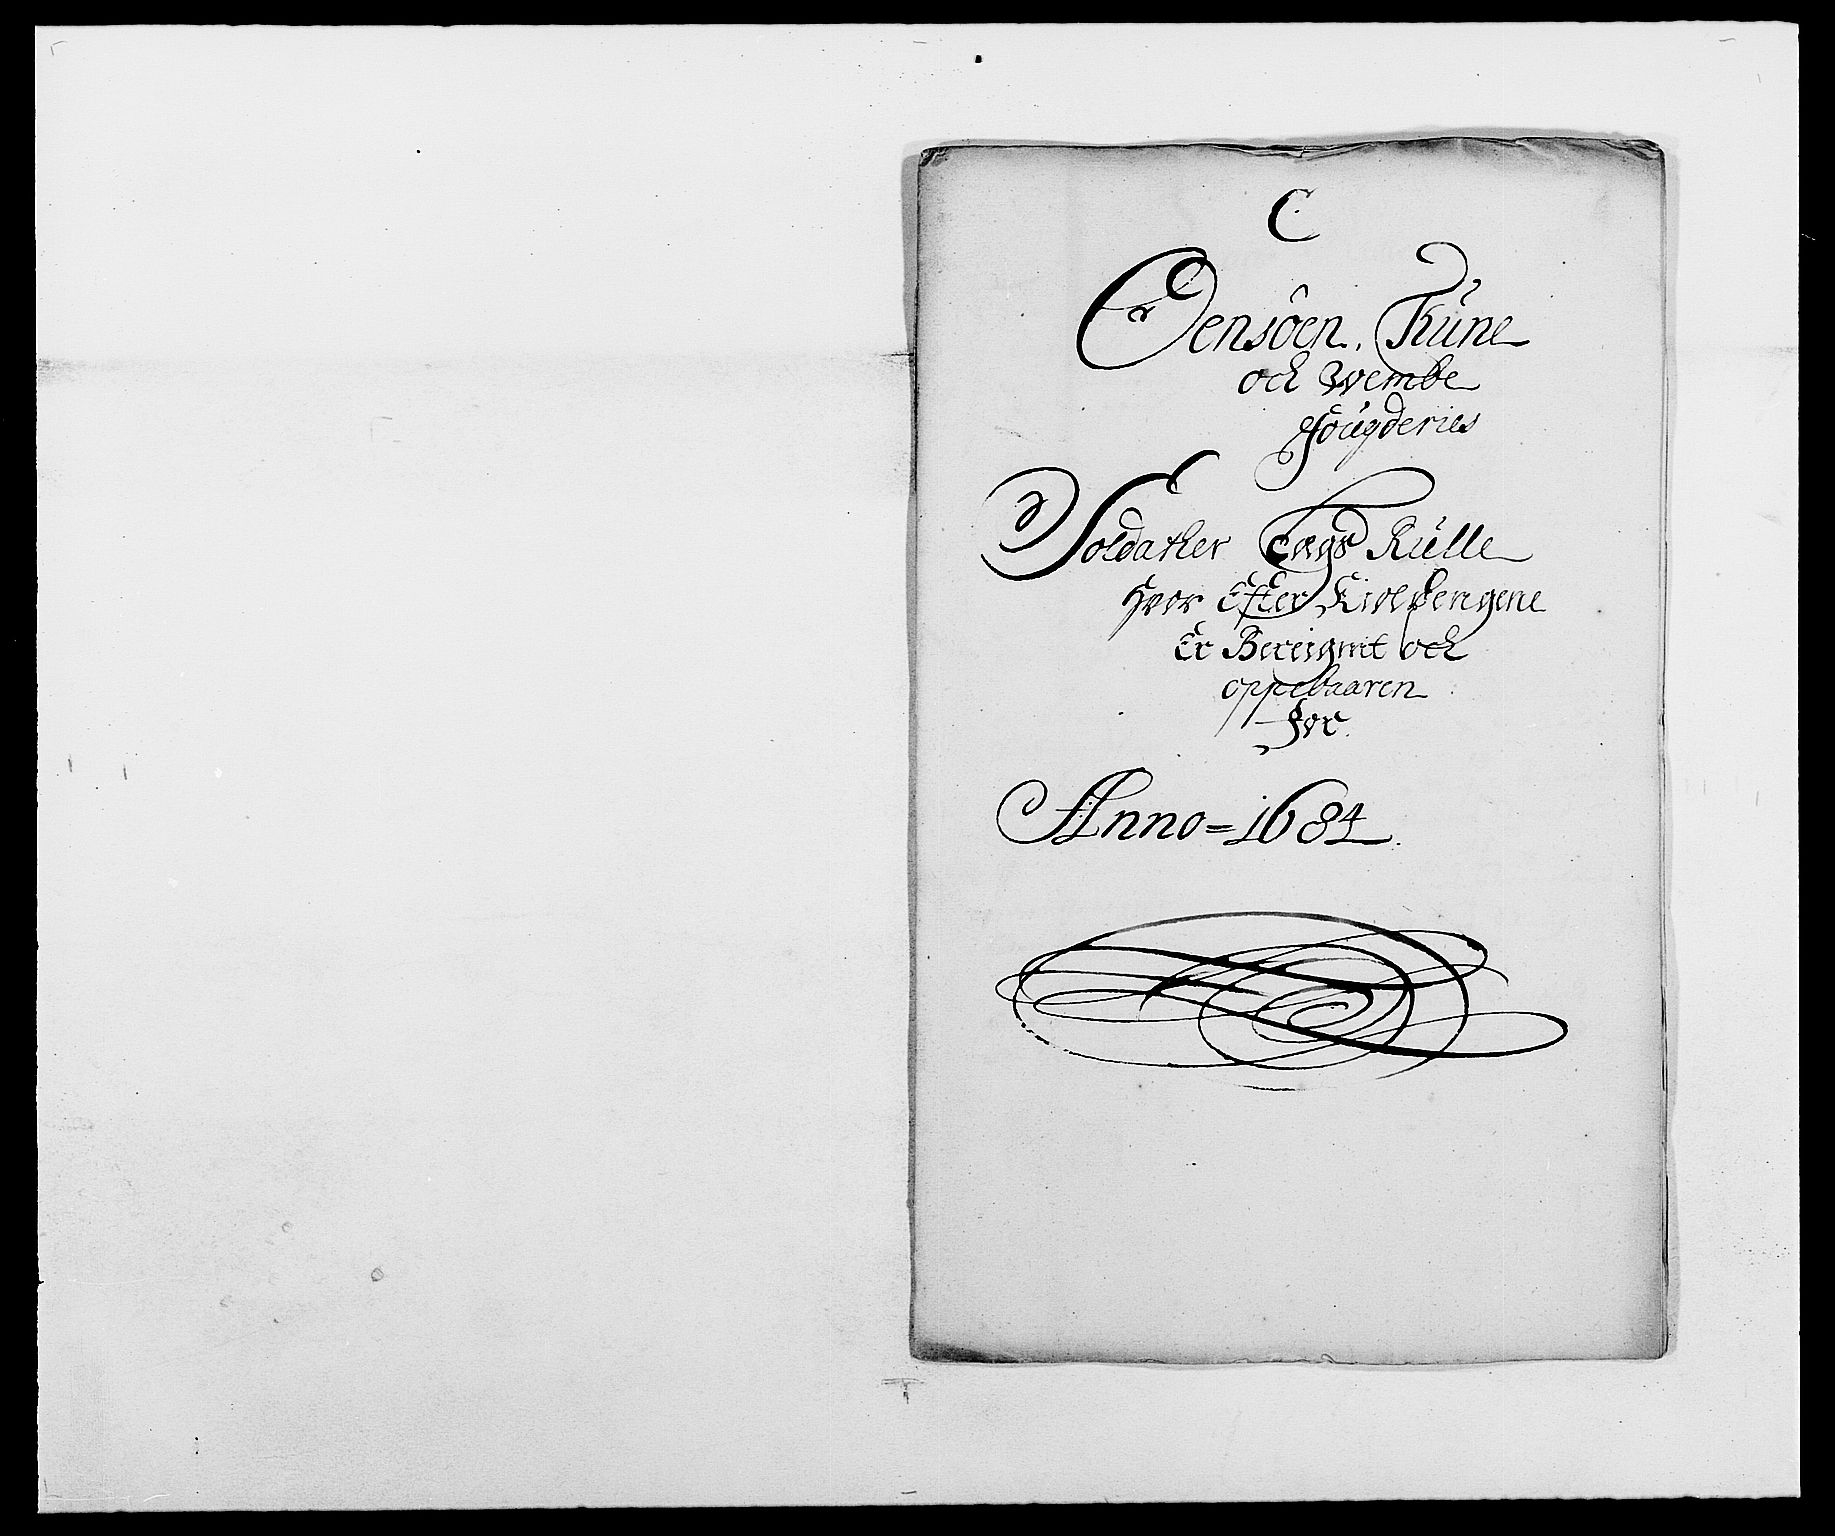 C
Oensöen, Tüne
och Wembe
ffoügderies
Soldather Lægs Rülle
Hvor Efter Kiolpengene
Er Bereignit och
oppebaaren
for
Anno=1684.